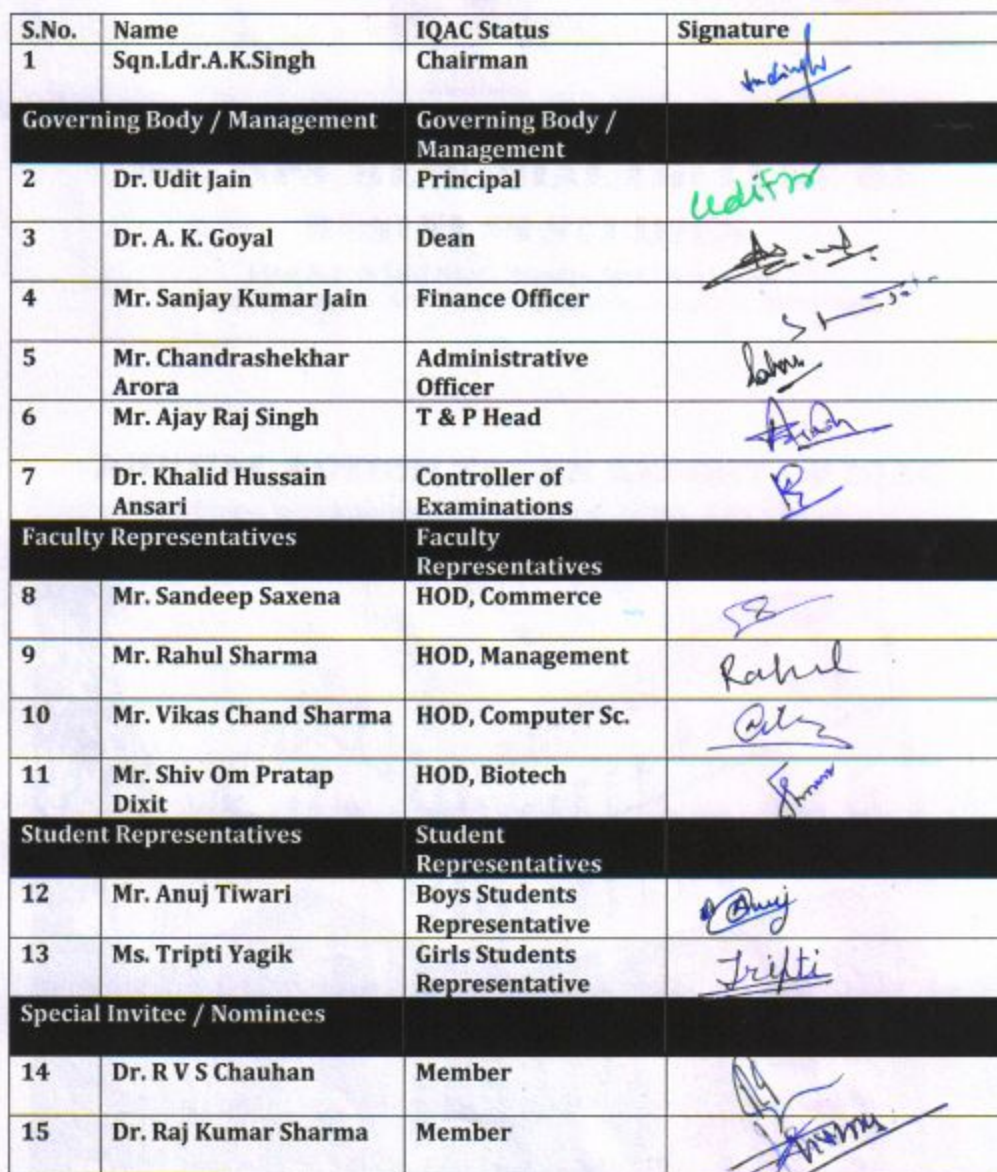 S.No. Name IQAC Status Signature
1 Sqn.Ldr.A.K.Singh Chairman
Governing Body / Management Governing Body /
Management
2 Dr. Udit Jain Principal
3 Dr. A. K. Goyal Dean
4 Mr. Sanjay Kumar Jain Finance Officer
5 Mr. Chandrashekhar Administrative
Arora Officer
6 Mr. Ajay Raj Singh T & P Head
7 Dr. Khalid Hussain Controller of
Ansari Examinations
Faculty Representatives Faculty
Representatives
8 Mr. Sandeep Saxena HOD, Commerce
9 Mr. Rahul Sharma HOD, Management Rahul
10 Mr. Vikas Chand Sharma HOD, Computer Sc.
11 Mr. Shiv Om Pratap HOD, Biotech
Dixit
Student Representatives Student
Representatives
12 Mr. Anuj Tiwari Boys Students Anuj
Representative
13 Ms. Tripti Yagik Girls Students Tripti
Representative
Special Invitee / Nominees
14 Dr. R V S Chauhan Member
15 Dr. Raj Kumar Sharma Member